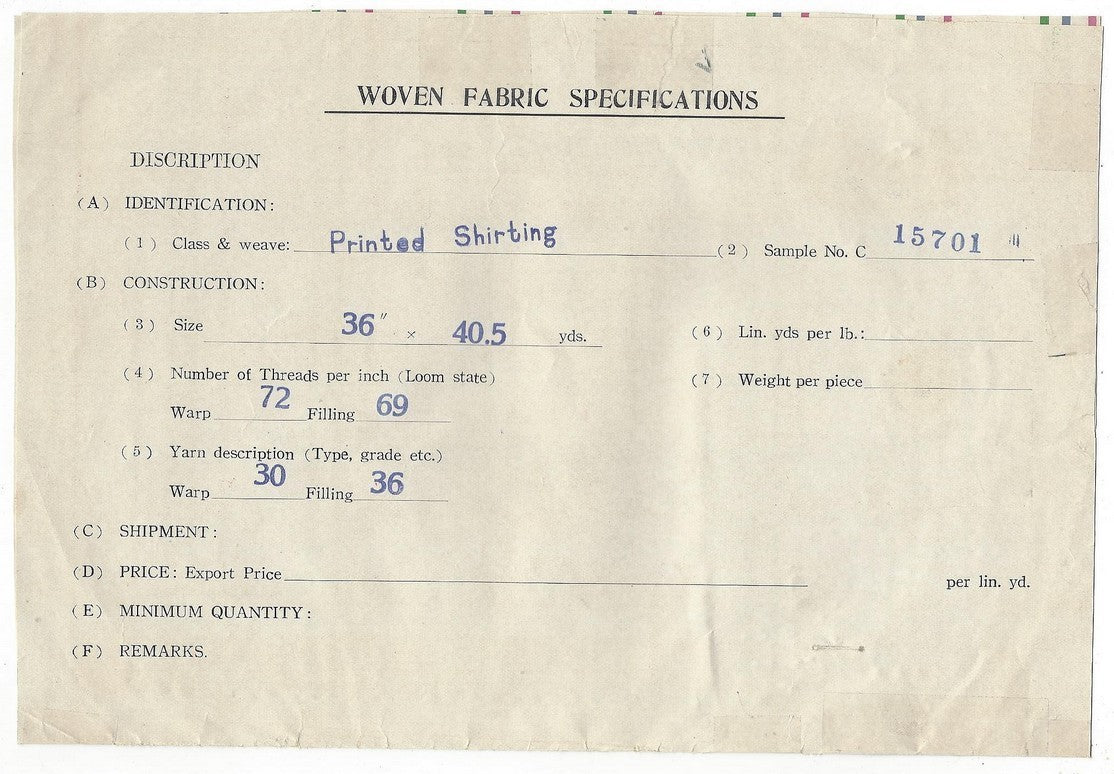 WOVEN FABRIC SPECIFICATIONS
DISCRIPTION
(A) IDENTIFICATION:
(1) Class & weave: Printed Shirting (2) Sample No. C 15701
(B) CONSTRUCTION:
(3) Size 36" × 40.5 yds. (6) Lin. yds per lb.:
(4) Number of Threads per inch (Loom state) (7) Weight per piece
Warp 72 Filling 69
(5) Yarn description (Type, grade etc.)
Warp 30 Filling 36
(C) SHIPMENT:
(D) PRICE: Export Price per lin. yd.
(E) MINIMUM QUANTITY:
(F) REMARKS.